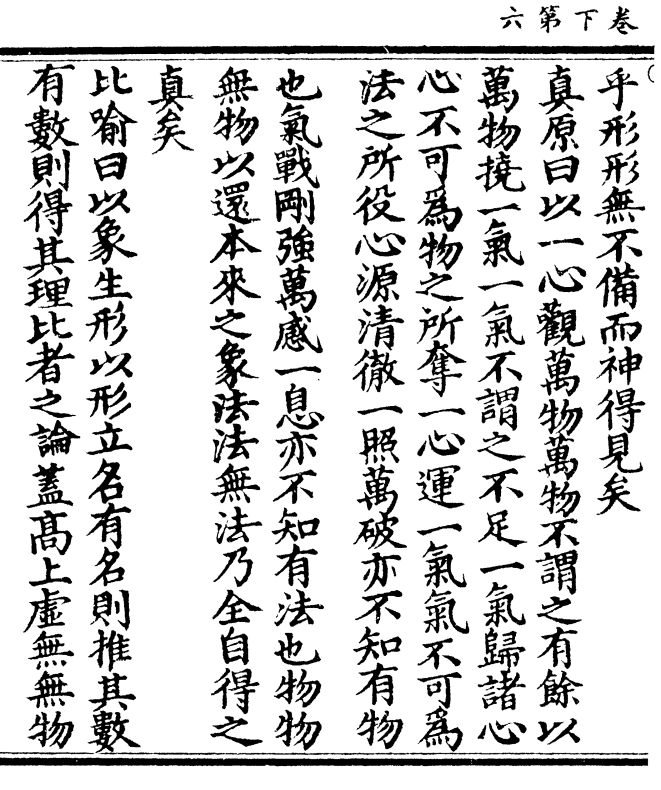 卷下第六
乎形形無不備而神得見矣
真原曰以一心觀萬物萬物不謂之有餘以
萬物撓一氣一氣不謂之不足一氣歸諸心
心不可爲物之所奪一心運一氣氣不可爲
法之所役心源清徹一照萬破亦不知有物
也氣戰剛強萬感一息亦不知有法也物物
無物以還本來之象法法無法乃全自得之
真矣
比喻曰以象生形以形立名有名則推其數
有數則得其理比者之論蓋高上虛無無物